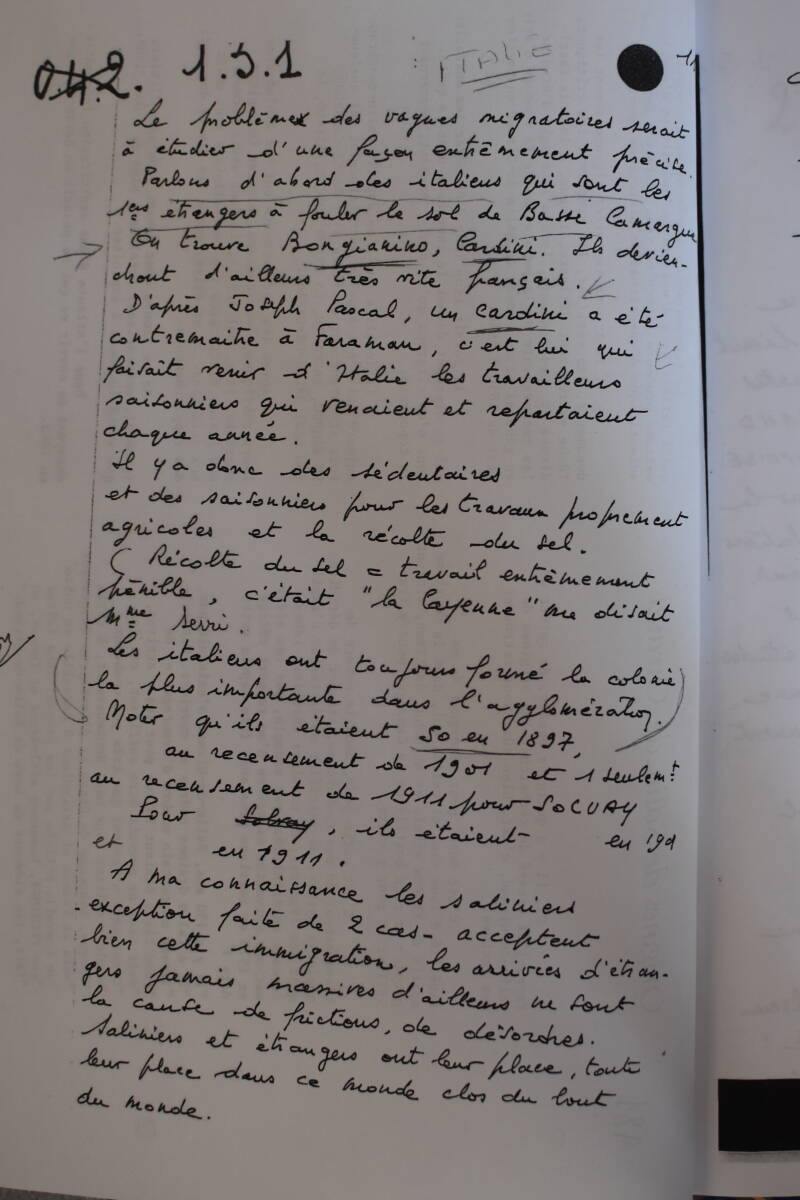 042. 1.3.1 ITALIE 11
Le problème des vagues migratoires serait
à étudier d'une façon extrêmement précise.
Parlons d'abord des italiens qui sont les
1ers étrangers à fouler le sol de Basse Camargue
On trouve Bongianino, Cardini. Ils devien-
dront d'ailleurs très vite français.
D'après Joseph Pascal, un Cardini a été
contremaitre à Faraman, c'est lui qui
faisait venir d'Italie les travailleurs
saisonniers qui venaient et repartaient
chaque année.
Il y a donc des sédentaires
et des saisonniers pour les travaux proprement
agricoles et la récolte du sel.
( Récolte du sel = travail extrêmement
pénible, c'était "la Cayenne" me disait
Mme Serri.
Les italiens ont toujours formé la colonie
la plus importante dans l'agglomération.
Noter qu'ils étaient 50 en 1897,
au recensement de 1901 et 1 seulemt
au recensement de 1911 pour SOLVAY
Pour Solvay, ils étaient en 191
et en 1911.
A ma connaissance les saliniers
- exception faite de 2 cas - acceptent
bien cette immigration, les arrivées d'étran-
gers jamais massives d'ailleurs ne sont
la cause de frictions, de désordres.
Saliniers et étrangers ont leur place, toute
leur place dans ce monde clos du bout
du monde.